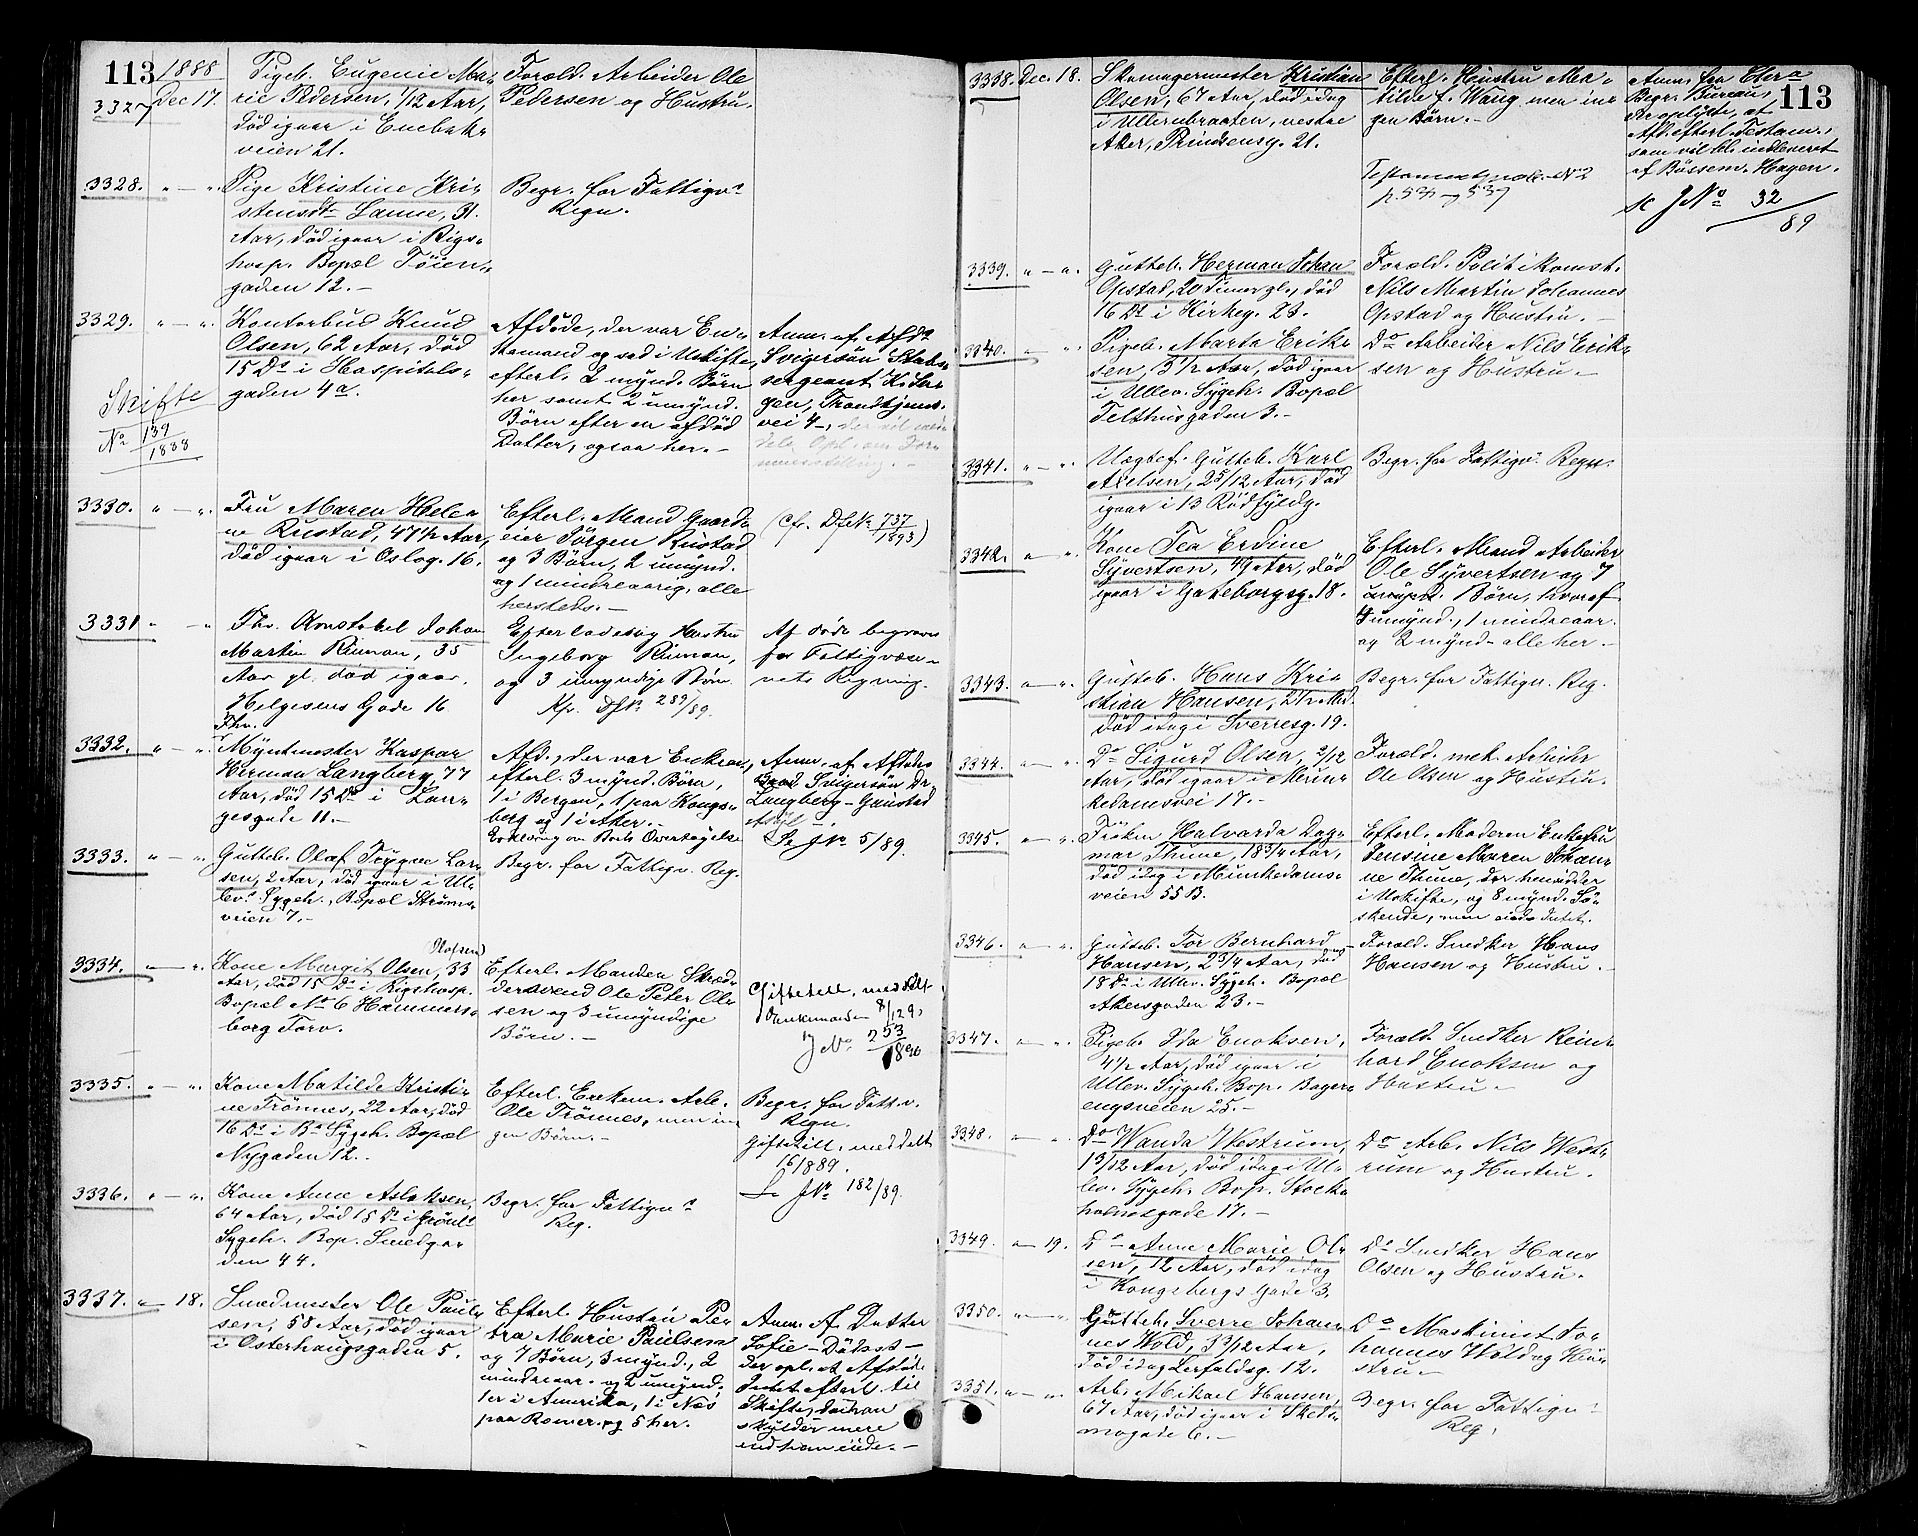 113
1888
3327
Dec 17.
Pigeb. Eugenie Ma-
rie Pedersen, 1/12 Aar,
död igaar i Enebak-
veien 21.
Foræld. Arbeider Ole
Pedersen og Hustru.
3328. " — ".
Pige Kristine Kri-
stensdtr Lanne, 31.
Aar, död igaar i Rigs-
hosp. Bopæl Töien-
gaden 12. —
Begr. for Fattigv.s
Regn.
3329. " — ".
Kontorbud Knud
Olsen, 62 Aar, död
15 Ds i Hospitals-
gaden 4a.
Skifte
No 139
1888
Afdöde, der var En-
kemand og sad i Uskifte,
efterl. 2 mynd. Börn
her samt 2 umynd.
Börn efter en afdöd
Datter, ogsaa her. —
Anm. af Afds
Svigersön Stads-
sergeant
Trondhjems-
vei 4,
3330. " — ".
Fru Maren Hele-
ne Rustad, 47 1/2 Aar,
död igaar i Oslog. 16.
Efterl. Mand Gaard-
eier Jörgen Rustad
og 3 Börn, 2 umynd.
og 1 mindreaarig, alle
hersteds. —
(Cfr. DfNo 737
1893)
3331 " — "
Fhv. Konstabel Johan
Martin Riman, 35
Aar gl. död igaar.
Helgesens Gade 16
Efterladesig Hustru
Ingeborg Riman,
og 3 umyndige Börn
Kfr. DfNo 289/89.
Af döde begraves
for Fattigvæse-
nets Regning.
3332. " — ".
Fhv.
Myntmester Kaspar
Herman Langberg, 77
Aar, död 15 Ds i Lan-
gesgade 11. —
Afd., der var Enkem.,
efterl. 3 mynd. Börn,
1 i Bergen, 1 paa Kongs-
berg og 1 i Aker. —
Erklæring om Boets Overtagelse
Anm. af Afdödes
Svigersön Dr.
Langberg - Gaustad
Asyl —
Se JNo 5/89.
3333. " — ".
Gutteb. Olaf Trygve Lar-
sen, 2 Aar, död igaar i Ul-
lev. Sygeh., Bopæl Ströms-
veien 7. —
Begr. for Fattigv. Reg.
3334. " — ".
(Olafsen)
Kone Margit Olsen, 33
Aar, död 15 Ds i Rigshosp.
Bopæl No 6 Hammers-
borg Torv.
Efterl. Manden Skræd-
dersvend Ole Peter Ol-
sen og 3 umyndige
Börn. —
Giftetill. meddelt
Enkemanden
JNo 253
1890
3335. " — ".
Kone Matilde Kristi-
ne Trönnes, 22 Aar, död
16 Ds i Bs Sygeh. Bopæl
Nygaden 12.
Efterl. Enkem. Arb.
Ole Trönnes, men in-
gen Börn. —
Begr. for Fatt.v.
Regn.
Giftetill. meddelt
1889.
Se JNo 182/89.
3336. " — ".
Kone Anne Aslaksen,
64 Aar, död 15 Ds i Grönl.
Sygeh. Bop. Smedga-
den 44.
Begr. for Fattigv.s
Reg.
3337. " — 18.
Smedmester Ole Paul-
sen, 58 Aar, död igaar
i Osterhausgaden 5.
Efterl. Hustru Pe-
tra Marie Paulsen
og 7 Börn, 3 mynd., 2
mindreaar. og 2 umynd.
1 er i Amerika, 1 i Næs
paa Romer. og 5 her.
Anm. Af Datter
Sofie — Dödsst —
der opl. at Afdöde
Intet efterl. til
Skifte, da han
skylder mere
end han eiede. —
113
3338. Dec. 18.
Skomagermester Kristian
Olsen, 67 Aar, död idag
i Ullernbraaten, vestre
Aker, Prindsensg. 21.
Efterl. Hustru Ma-
tilde f. Wang men in-
gen Börn. —
Testamentprot. No 2
p. 537
Anm. fra Chra
Begr. Bureau,
der oplyste, at
Afd. efterl. Testam.,
som vil bli indleveret
af Bössem. Hagen.
se JNo 32
89
3339. " — ".
Gutteb. Herman Johan
Opstad, 20 Timer gl., död
16 Ds i Kirkeg. 23.
Foræld. Politikonst.
Nils Martin Johannes
Opstad og Hustru. —
3340. " — ".
Pigeb. Marta Erik-
sen, 3 1/2 Aar, död igaar
i Ullev. Sygeh. Bopæl
Telthusgaden 3. —
Do Arbeider Nils Erik-
sen og Hustru. —
3341. " — ".
Uægtef. Gutteb. Karl
Axelsen, 2 5/12 Aar, död
igaar i 13 Rödfyldg.
Begr. for Fattigv. Regn.
3342. " — ".
Kone Tea Erdine
Syvertsen, 49 Aar, död
igaar i Gøteborgsg. 18.
Efterl. Mand Arbeider
Ole Syvertsen og 7
Börn, hvoraf
4 umynd., 1 mindreaar.
og 2 mynd. alle her. —
3343. " — ".
Gutteb. Hans Kri-
stian Hansen, 2 1/2 Md.
död idag i Sverresg. 19.
Begr. for Fattigv. Reg.
3344. " — ".
Do Sigurd Olsen, 2/12
Aar, död igaar i Mun-
kedamsvei 17. —
Foræld. mek. Arbeider
Ole Olsen og Hustru.
3345. " — ".
Fröken Halvarda Dag-
mar Thune, 18 3/4 Aar,
död idag i Munkedams-
veien 55 B.
Efterl. Moderen Enkefru
Jensine Maren Johan-
ne Thune, der hensidder
i Uskifte, og 8 mynd. Sö-
skende, men eiede Intet.
3346. " — ".
Gutteb. Tor Bernhard
Hansen, 2 3/4 Aar, död
18 Ds i Ullev. Sygeh. Bopæl
Akersgaden 23. —
Foræld. Snedker Hans
Hansen og Hustru. —
3347. " — ".
Pigeb. Ida Enoksen,
4 1/2 Aar, död igaar i
Ullev. Sygeh. Bop. Bager-
engsveien 25. —
Foræld. Snedker Rein-
hard Enoksen og
Hustru. —
3348. " — ".
Do Wanda Westrum,
1 3/12 Aar, död idag i Ul-
lev. Sygeh. Bop. Stock-
holmsgade 17. —
Do Arb. Nils West-
rum og Hustru.
3349. " — 19.
Do Anne Marie Ol-
sen, 12 Aar, död idag
i Kongsbergs Gade 3.
Do Snedker Hans
Olsen og Hustru.
3350. " — ".
Gutteb. Sverre Johan-
nes Wold, 3 3/12 Aar,
död idag Lerfaldsg. 12.
Do Maskinist Jo-
hannes Wold og Hu-
stru —
3351. " — ".
Arb. Mikael Hansen,
67 Aar, död igaar i Sked-
mogade 6. —
Begr. for Fattigv.s
Reg.